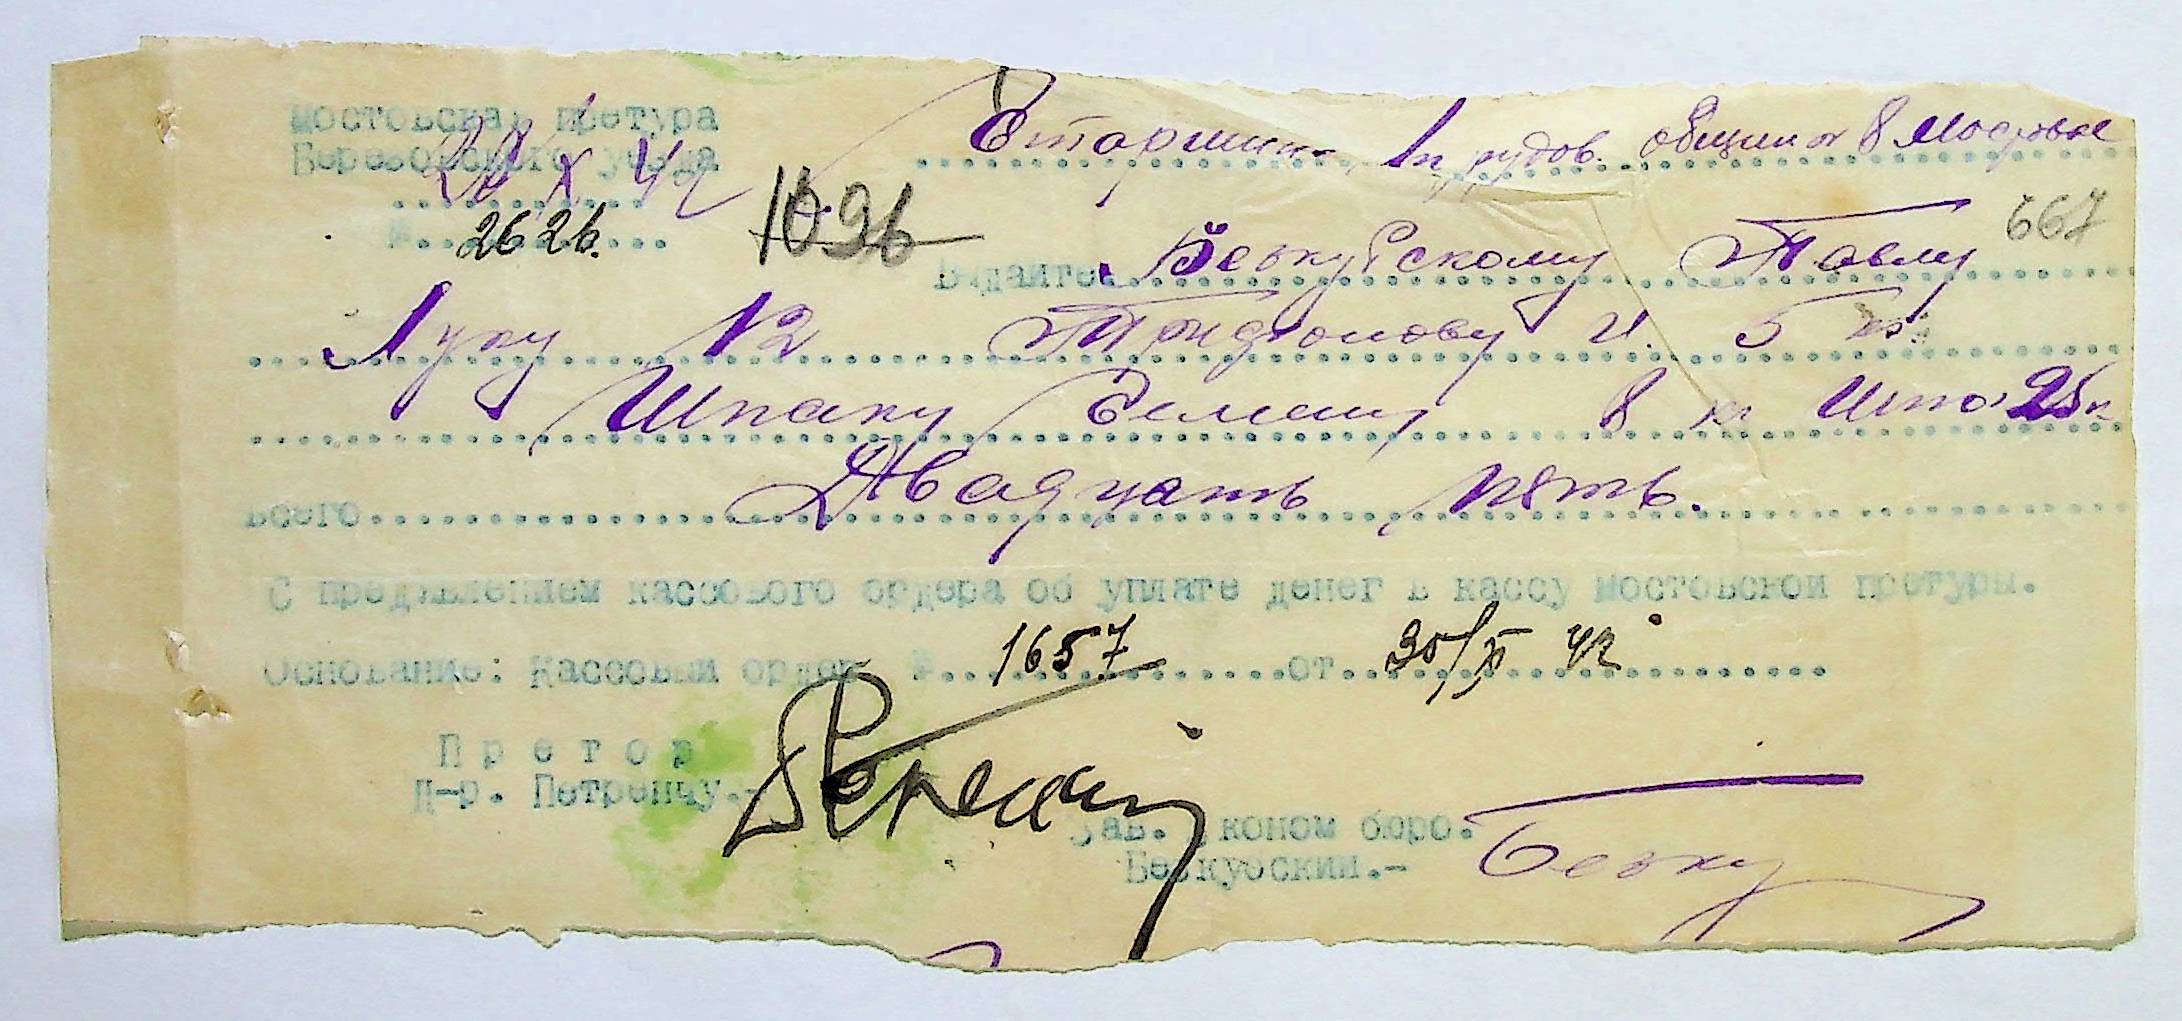 Мостовская претура
Березовского уезда
№ 2626.
1096
Старшине 1 трудов. общины в Мостовое
667
Выдайте Безкубскому Павлу
Луку 12 Трифонову И. 5 кг.
Шпаку Семену 8 кг Итого 25 кг
Всего Двадцать пять.
С предявлением кассового ордера об уплате денег в кассу Мостовской претуры.
Основание: Кассовый ордер № 1657 от 30/XI 42
Претор
Д-р. Петренчу.-
Зав. Эконом бюро.
Безкубский.-